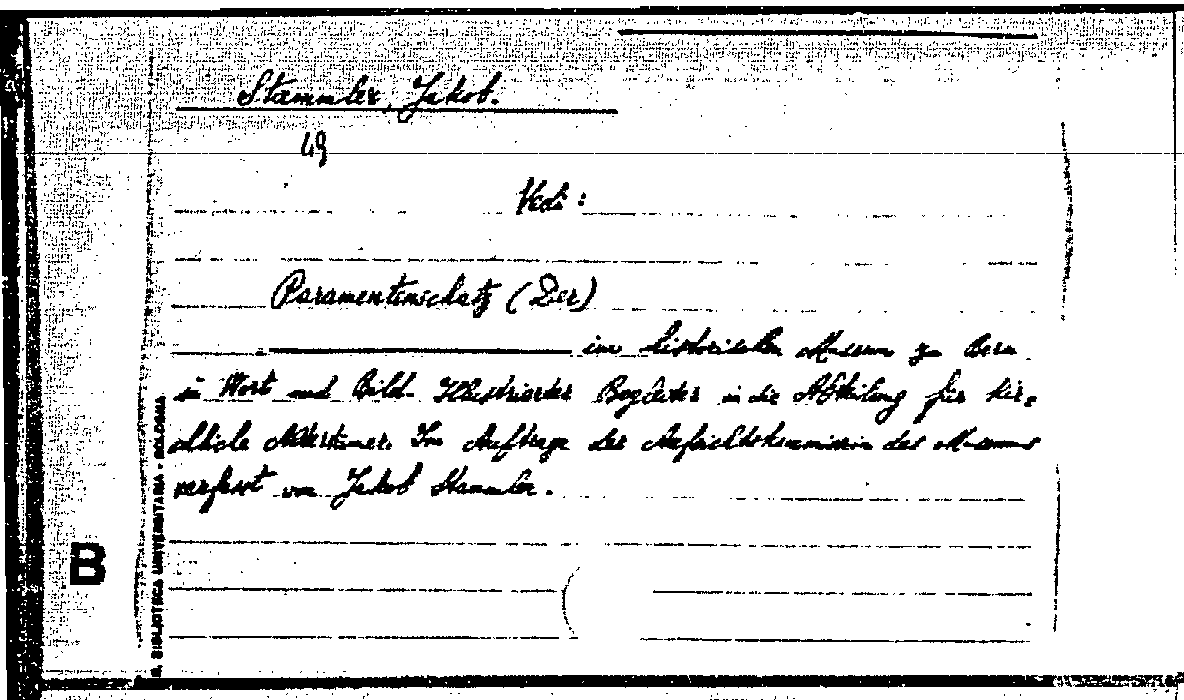 Stammler, Jakob.
49
Vedi:
Paramentenschatz (Der)
im historischen Museum zu Bern
in Wort und Bild. Illustrierter Begleiter in die Abtheilung für kir=
chliche Altertümer. Im Auftrage der Aufsichtskommission des Museums
verfasst von Jakob Stammler.
B
R. BIBLIOTECA UNIVERSITARIA - BOLOGNA